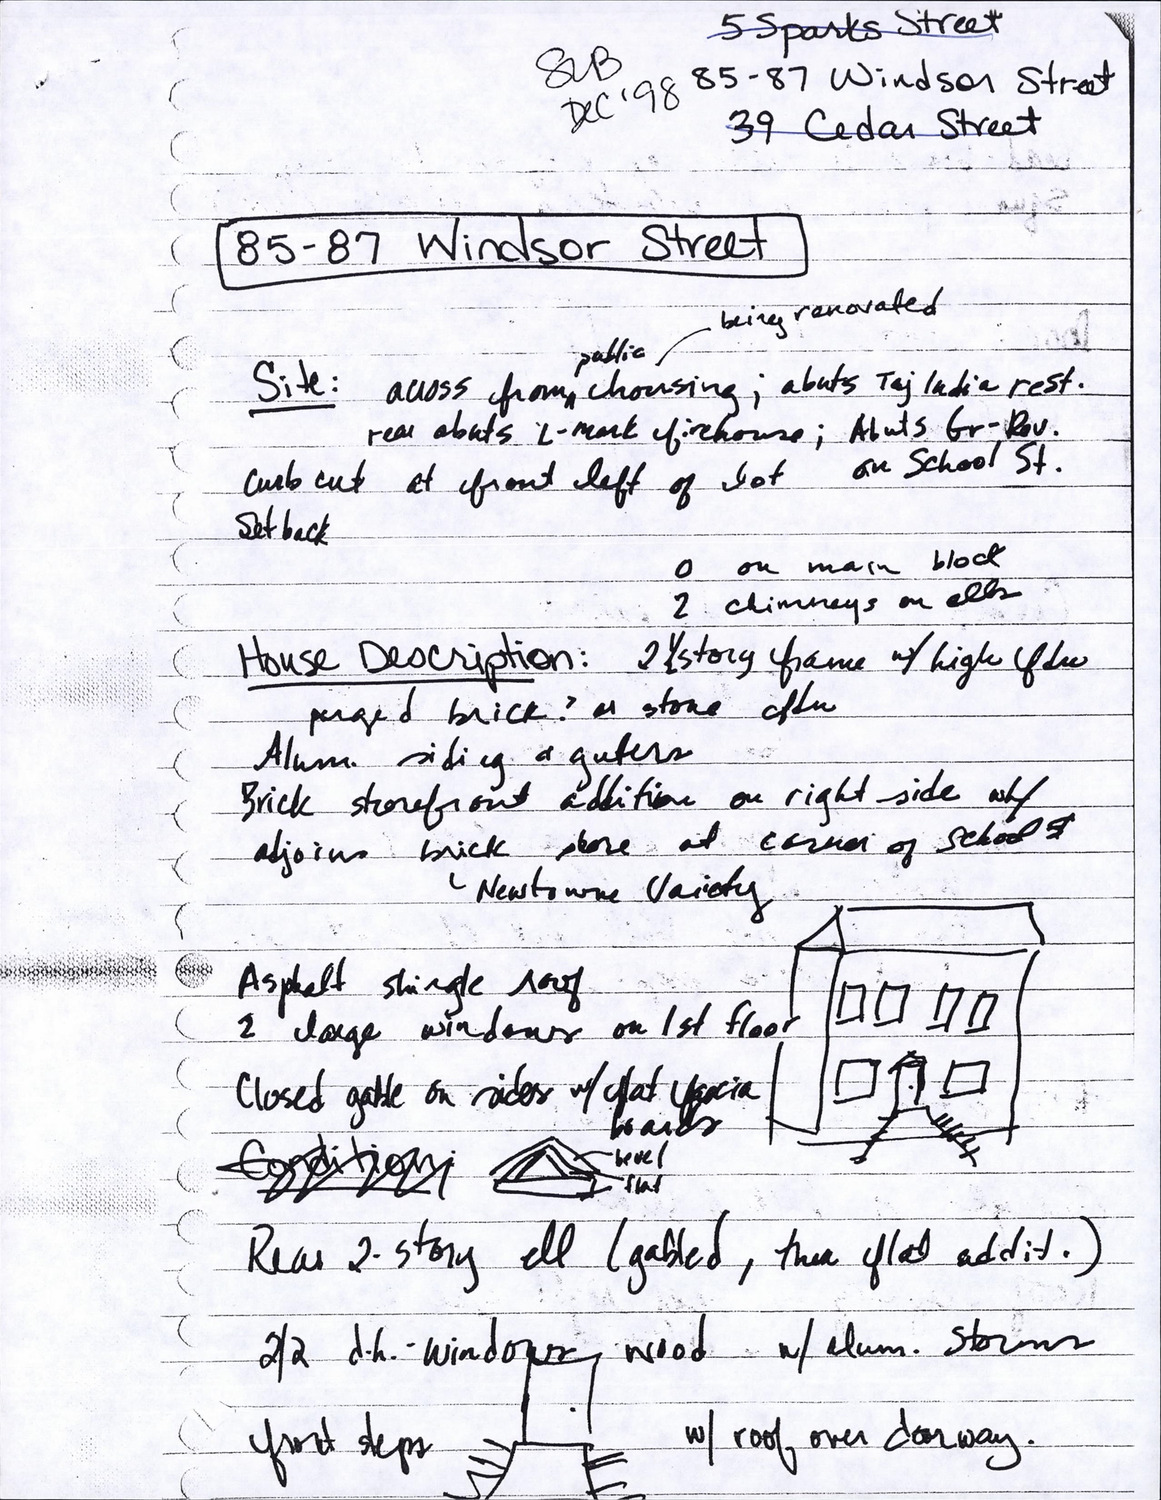 5 Sparks Street
SLB
DEC '98
85-87 Windsor Street
39 Cedar Street
85-87 Windsor Street
being renovated
public
Site: across from housing; abuts Taj India rest.
rear abuts L-mark firehouse; Abuts Gr-Rev.
on School St.
Curb cut at front left of lot
Setback
0 on main block
2 chimneys on ells
House Description: 2½ story frame w/ high fdn
parged brick? or stone fdn
Alum. siding & guters
Brick storefront addition on right side wh/
adjoins brick store at corner of School St
Newtowne Variety
Asphalt shingle roof
2 large windows on 1st floor
Closed gable on sides w/ flat fascia
boards
Condition:
bevel
flat
Rear 2-story ell (gabled, then flat addit.)
2/2 d.h.-windows, wood w/ alum. storms
front steps w/ roof over doorway.